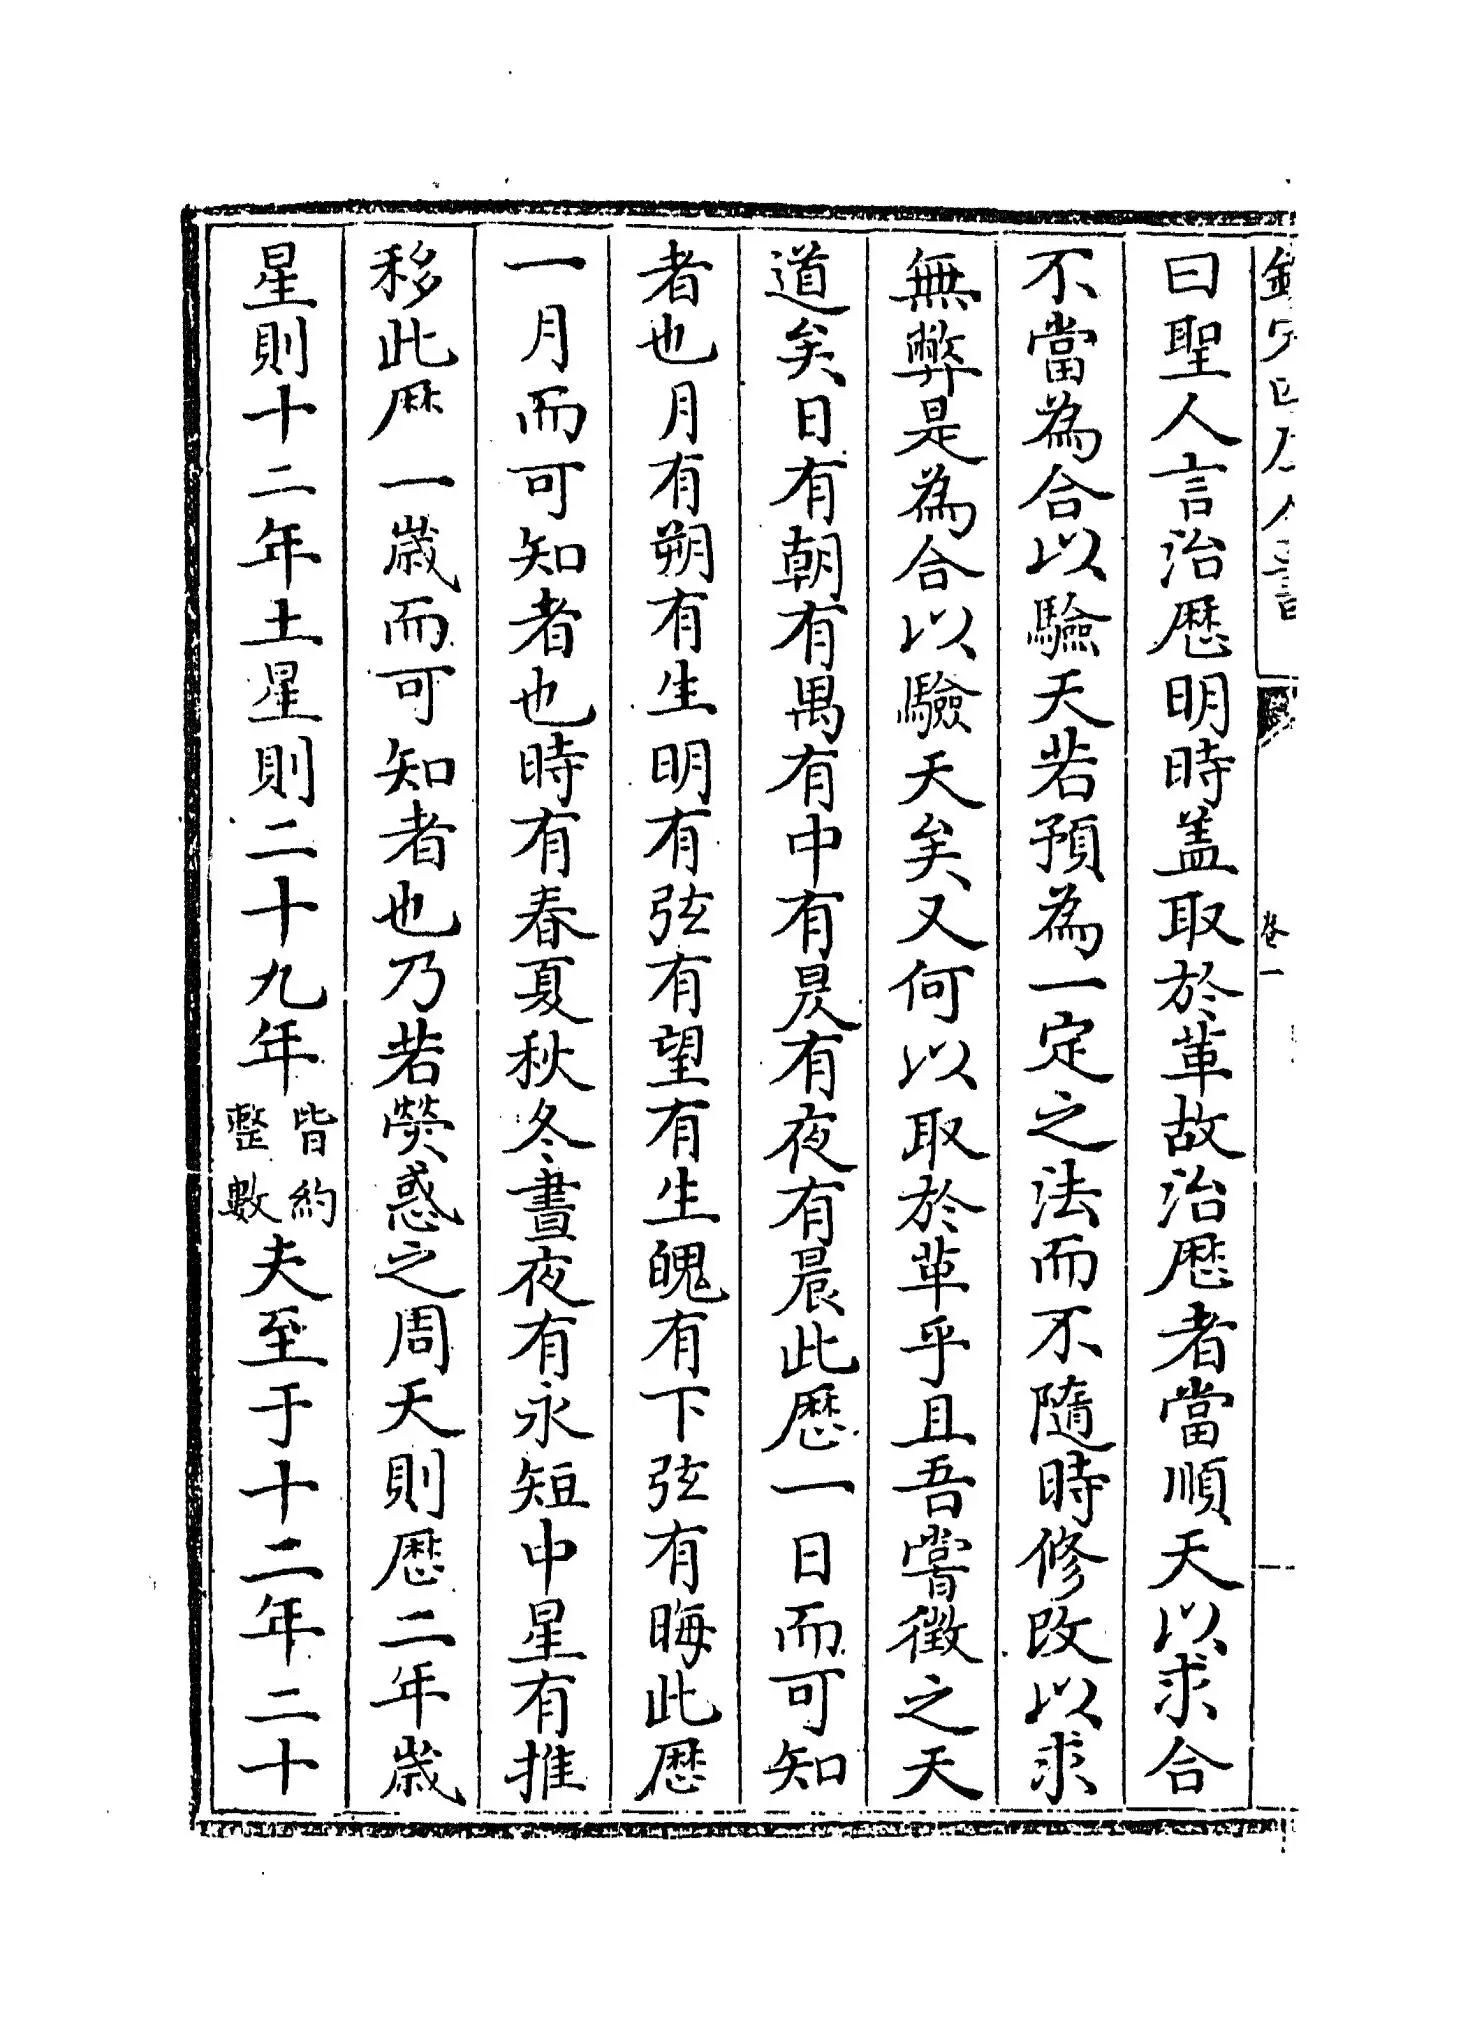 欽定四庫全書
卷一
曰聖人言治厯明時盖取於革故治厯者當順天以求合
不當為合以驗天若預為一定之法而不隨時修改以求
無弊是為合以驗天矣又何以取於革乎且吾嘗徵之天
道矣日有朝有禺有中有昃有夜有晨此厯一日而可知
者也月有朔有生明有弦有望有生魄有下弦有晦此厯
一月而可知者也時有春夏秋冬晝夜有永短中星有推
移此厯一歲而可知者也乃若熒惑之周天則厯二年歲
星則十二年土星則二十九年皆約整數夫至于十二年二十